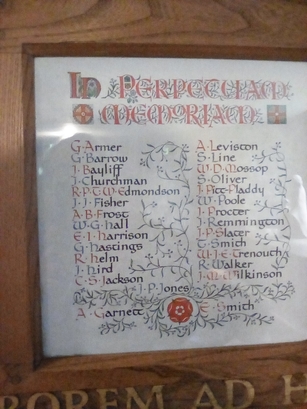 IN PERPETUAM
MEMORIAM
G·Armer
G·Barrow
J·Bayliff
J·Churchman
R·P·T·W·Edmondson
J·J·Fisher
A·B·Frost
W·G·Hall
E·J·Harrison
G·Hastings
R·Helm
J·Hird
C·S·Jackson
J·P·Jones
A·Garnett
A·Leviston
S·Line
W·D·Mossop
S·Oliver
J·Pitt-Maddy
W·Poole
J·Procter
J·Remmington
J·P·Slater
T·Smith
W·J·E·Trenouth
R·Walker
J·W·Wilkinson
E·Smith
ROREM AD H